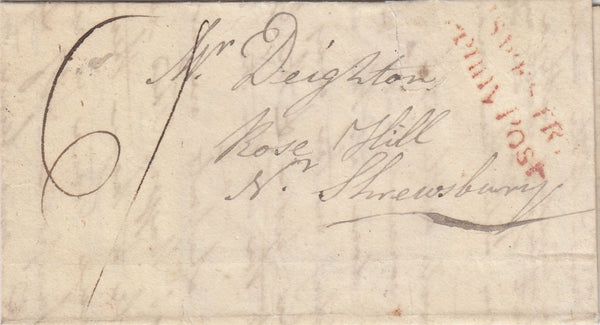 Mr Deighton
Rose Hill
Nr Shrewsbury
PENNY POST